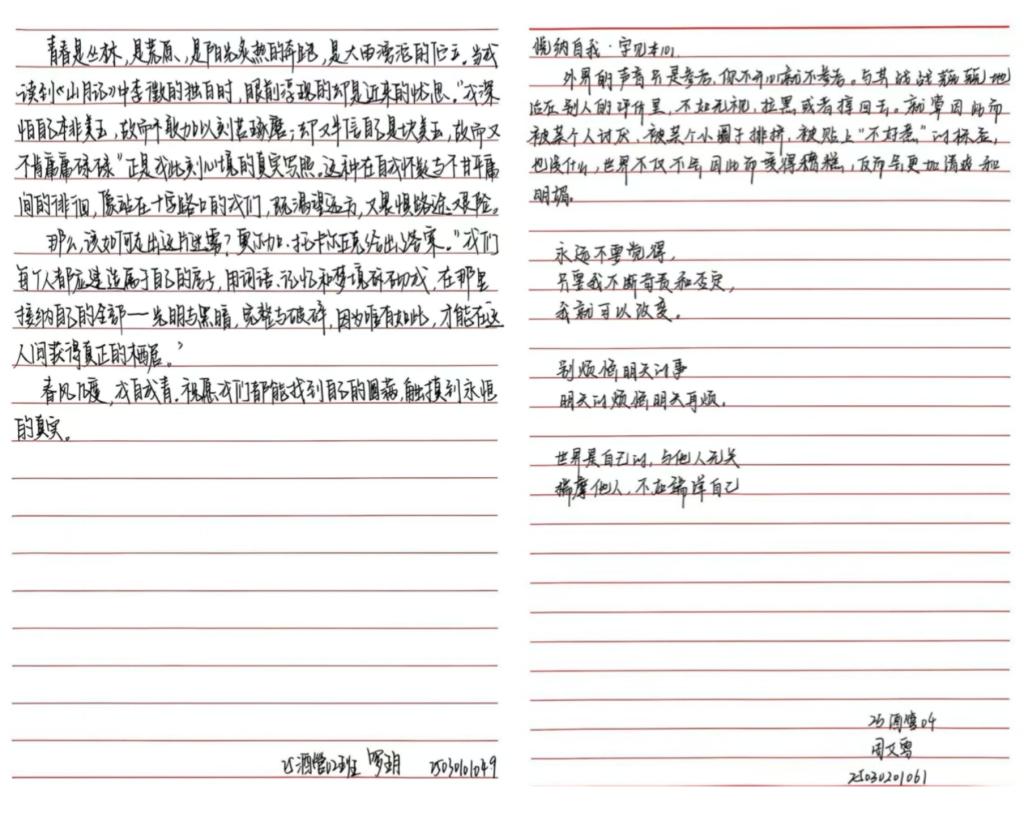 青春是丛林,是荒原,是阳光炙热的奔跑,是大雨滂沱的伫立。当我
读到《山月记》中李徵的独白时,眼前浮现的却是近来的忧思。"我深
怕自己本非美玉,故而不敢加以刻苦琢磨;却又半信自己是块美玉,故而又
不肯庸庸碌碌"正是我此刻心境的真实写照。这种在自我怀疑与不甘平庸
间的徘徊,像站在十字路口的我们,既渴望远方,又畏惧路途艰险。
那么,该如何走出这片迷雾?奥尔加·托卡尔丘克给出了答案。"我们
每个人都应建造属于自己的房子,用词语、记忆和梦境砖砌成,在那里
接纳自己的全部——光明与黑暗,完整与破碎,因为唯有如此,才能在这
人间获得真正的栖居。"
春风几度,我自成青。祝愿我们都能找到自己的圆满,触摸到永恒
的真实。
25酒管02班 罗玥 25030101049
悦纳自我·字见本101
外界的声音只是参考,你不开心就不参考。与其战战兢兢地
活在别人的评价里,不如无视,拉黑或者撑回去。就算因此而
被某个人讨厌、被某个小圈子排挤,被贴上"不好惹"的标签,
也没什么,世界不仅不会因此而变得糟糕,反而会更加清爽和
明媚。
永远不要觉得,
只要我不断苛责和否定,
我就可以改变。
别烦恼明天的事
明天的烦恼明天再烦。
世界是自己的,与他人无关
揣摩他人,不如琢磨自己
25酒管04
周文雪
25030201061